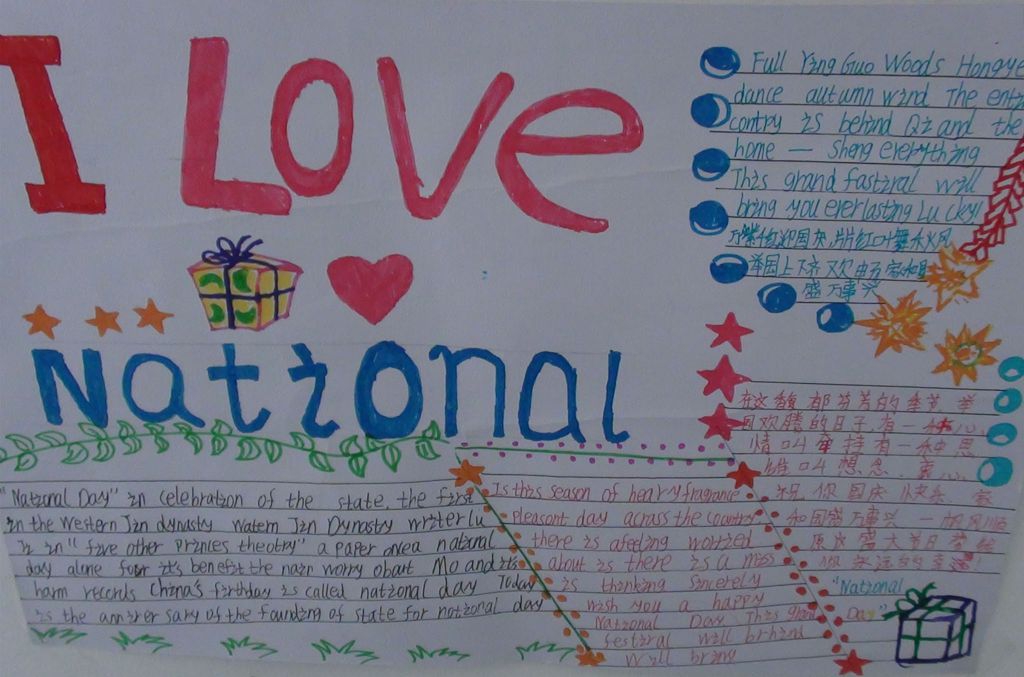 I LOVe
National
Full Ying Guo Woods Hongye
dance autumn wind The enti
contry is behind Qi and the
home — sheng everything
This grand fastival will
bring you everlasting Lucky!
万紫 迎国庆,片片红叶舞秋风
举国上下齐欢
盛万事兴
在这 郁芬芳的季节 举
国欢腾的日子,有一种心
情叫牵持有一种思
维叫想念 衷心
祝你国庆快乐 家
和国盛万事兴 一帆风顺
愿此盛大节日
你永远的幸运!
"National Day" in celebration of the state, the first
in the western Jin dynasty Watern Jin Dynasty writer lu
Ji in "five other princes theotry" a paper onea national
day alone for it's benefit the nain worry obout Mo and it's
harm records China's firthday is called national day Today
is the annirer sary of the founding of state for notional day
Is this season of heary fragrance
pleasont day across the country
there is afeeling worried
about is there is a miss
is thinking sincetely
wish you a happy
National Day This grand
festiral will brhind
will bring
"National
Day"